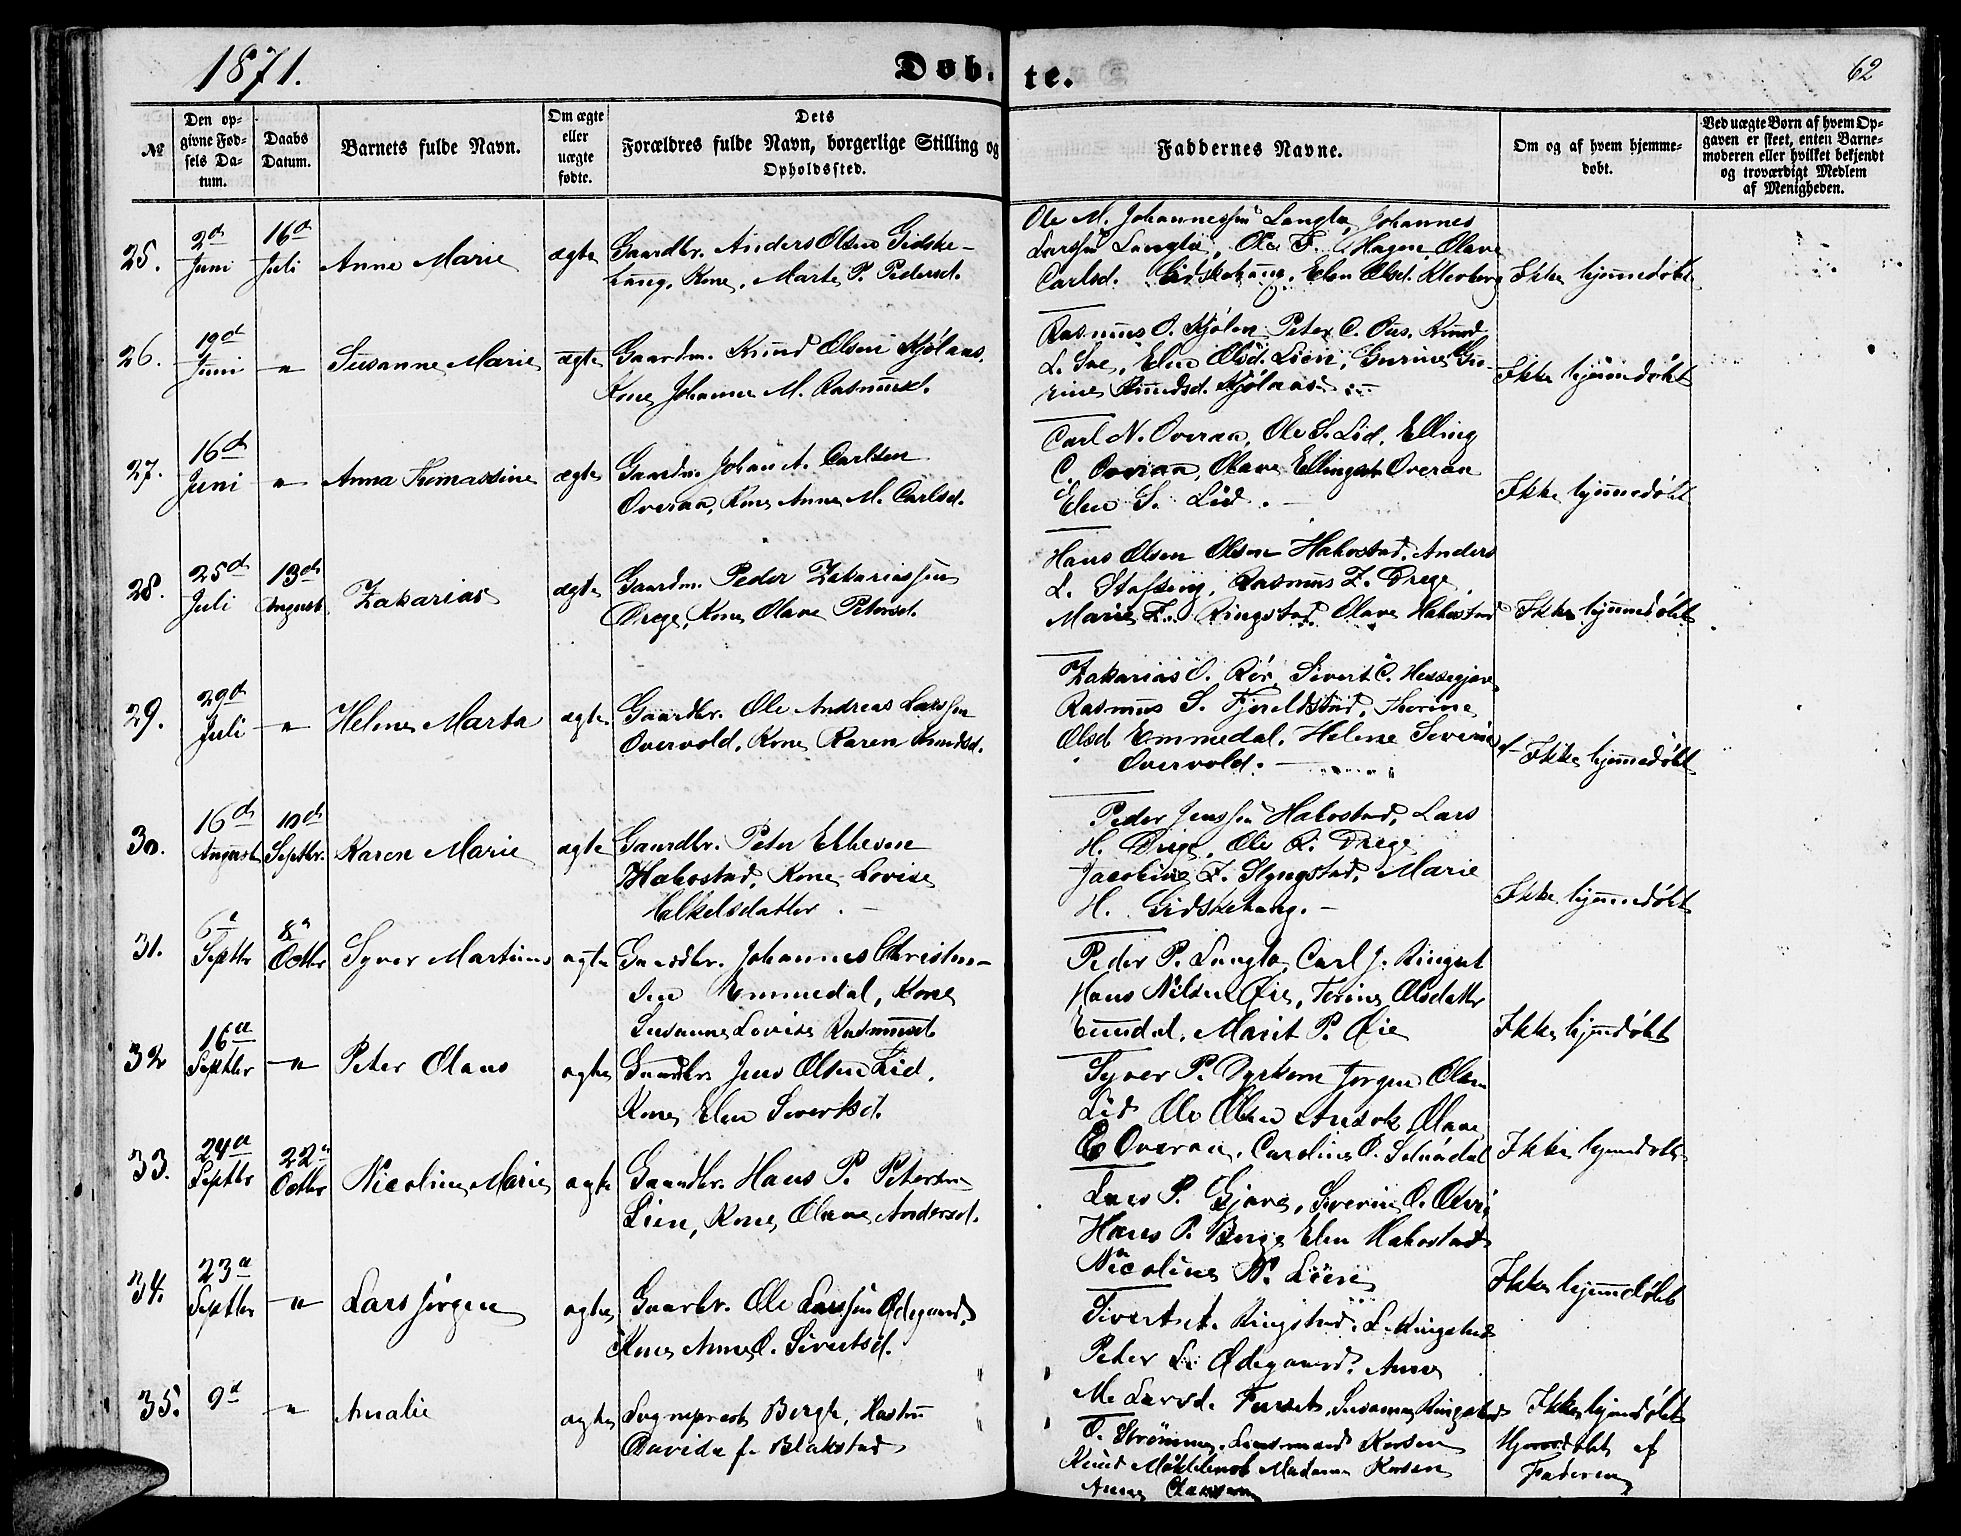 1871.
Døbte.
62
№
Den opgivne Fødsels Datum.
Daabs Datum.
Barnets fulde Navn.
Om ægte eller uægte fødte.
Dets Forældres fulde Navn, borgerlige Stilling og Opholdssted.
Faddernes Navne.
Om og af hvem hjemmedøbt.
Ved uægte Børn af hvem Opgaven er skeet, enten Barnemoderen eller hvilket bekjendt og troværdigt Medlem af Menigheden.
25.
2d Juni
16d Juli
Anne Marie
ægte
Gaardbr. Anders Olsen Gidske-
haug, Kone, Marte P. Pedersd.
Ole M. Johannessen Langlo, Johannes
Larssen Langlo, Ole T. Magne, Olave
Carlsd. Gidskehaug, Elen Olsd. Klevberg
Ikke hjemmedøbt
26.
19d Juni
"
Susanne Marie
ægte
Gaardm. Knud Olsen Kjølaas.
Kone Johanne M. Rasmusd.
Rasmus O. Kjølen, Peter C. Aus. Knud
L. Sve, Elen Olsd. Lien, Gurine Gu-
rine Knudsd. Kjølaas
Ikke hjemmedøbt
27.
16d Juni
"
Anna Thomassine
ægte
Gaardm. Johan A. Carlsen
Overaa, Kone Anne M. Carlsd.
Carl N. Overaa, Ole S. Lid, Elling
C. Overaa, Olave Ellingsd. Overaa
Elen S. Lid.
Ikke hjemmedøbt
28.
25d Juli
13d August
Zakarias
ægte
Gaardm. Peder Zakariassen
Drege, Kone Olave Petersd.
Hans Olsen Olsen Habostad, Anders
L. Stafseng, Rasmus Z. Drege
Marie Z. Ringstad, Olave Habostad
Ikke hjemmedøbt
29.
29d Juli
"
Helene Marta
ægte
Gaardbr. Ole Andreas Larssen
Overvold, Kone Karen Knudsd.
Zakarias O. Rør, Sivert C. Hessegjære
Rasmus S. Fjeldstad, Thorine
Olsd. Emmedal, Helene Severine
Overvold.
Ikke hjemmedøbt
30.
16d August
10d Septbr.
Karen Marie
ægte
Gaardbr. Peter Ellevsen
Habostad, Kone Lovise
Helkelsdatter
Peder Jenssen Habostad, Lars
H. Drege, Ole R. Drege
Jacobine Z. Flyngstad, Marie
H. Gidskehaug.
Ikke hjemmedøbt
31.
Septbr
8d Octbr
Syver Martinus
ægte
Gaardbr. Johannes Christen-
sen Emmedal, Kone
Susanne Lovise Rasmusd.
Peder P. Langlo, Carl J. Ringset
Hans Nilsen Øie, Torine Olsdatter
Emdal, Marit P. Øie
Ikke hjemmedøbt
32
16d Septbr
"
Peter Olaus
ægte
Gaardbr. Jens Olsen Lid.
Kone Elen Sivertsd.
Syver P. Dyrkorn Jørgen Olsen
Lid Ole Olsen Ansok Olave
E. Overaa, Caroline O. Solnørdal
Ikke hjemmedøbt
33.
24d Septbr
22d Octbr
Nicoline Marie
ægte
Gaardbr. Hans P. Petersen
Lien, Kone Olave Andersd.
Lars P. Gjære, Severin O.
Hans P. Berge Elen Habostad
Nicoline N. Lien
Ikke hjemmedøbt
34.
23d Septbr
"
Lars Jørgen
ægte
Gaarbr. Ole Larssen Ødegaard,
Kone Anne O. Sivertsd.
Sivert A. Ringstad, L. Ringstad
Peter L. Ødegaard, Anne
M. Larsd. Furset, Susanne Ringstad
Ikke hjemmedøbt
35.
9d
"
Amalie
ægte
Sogneprest Bergh, Hustru
Davida f. Blakstad
O. Strømme, Lensmand Korsen
Knud Madame Korsen
Anne
Hjemmdøbt af
Faderen